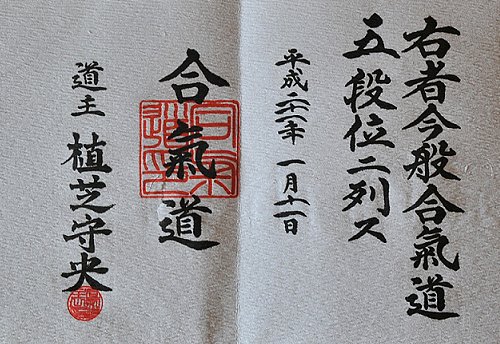 右者今般合氣道
五段位ニ列ス
平成二十一年 一月十一日
合氣道
道主 植芝守央